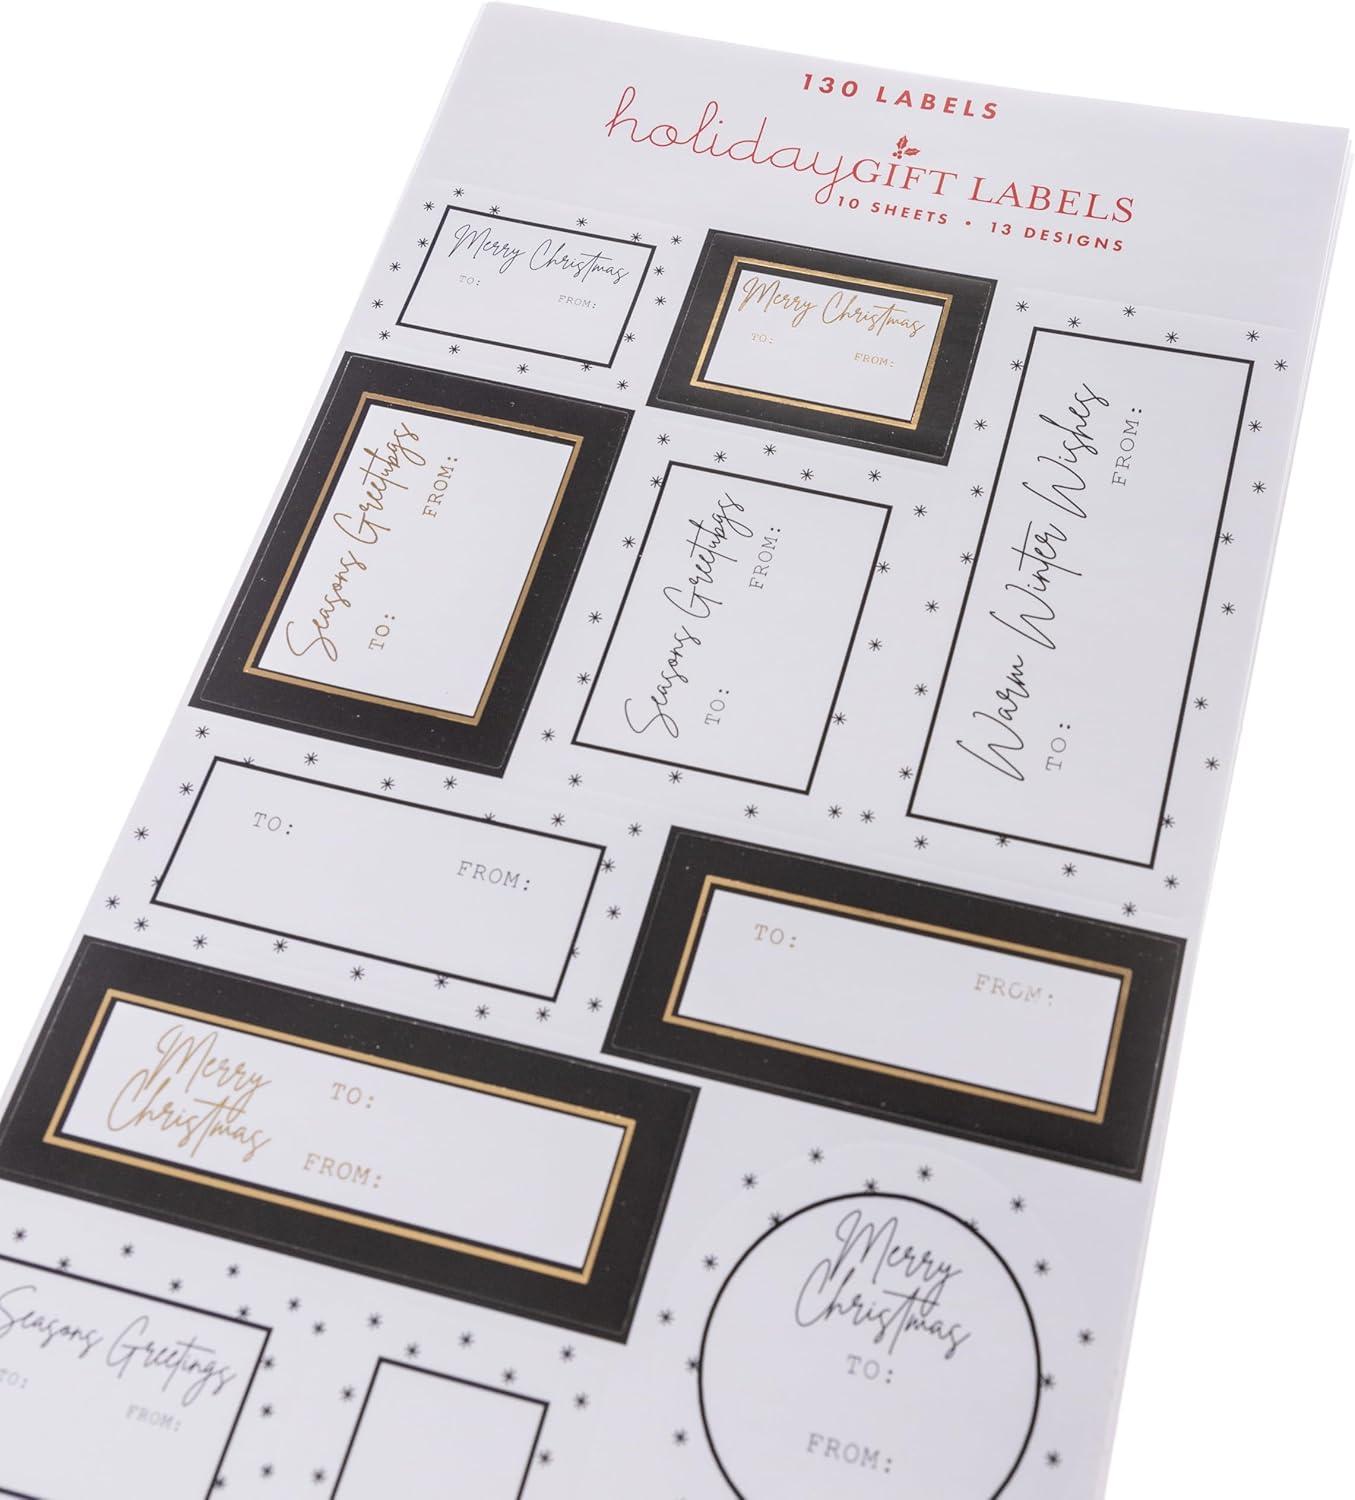 130 LABELS
holiday GIFT LABELS
10 SHEETS • 13 DESIGNS
Merry Christmas
TO:
FROM:
Merry Christmas
TO:
FROM:
Seasons Greetings
TO:
FROM:
Seasons Greetings
TO:
FROM:
Warm Winter Wishes
TO:
FROM:
TO:
FROM:
TO:
FROM:
Merry
Christmas
TO:
FROM:
Merry
Christmas
TO:
FROM:
Seasons Greetings
TO:
FROM: